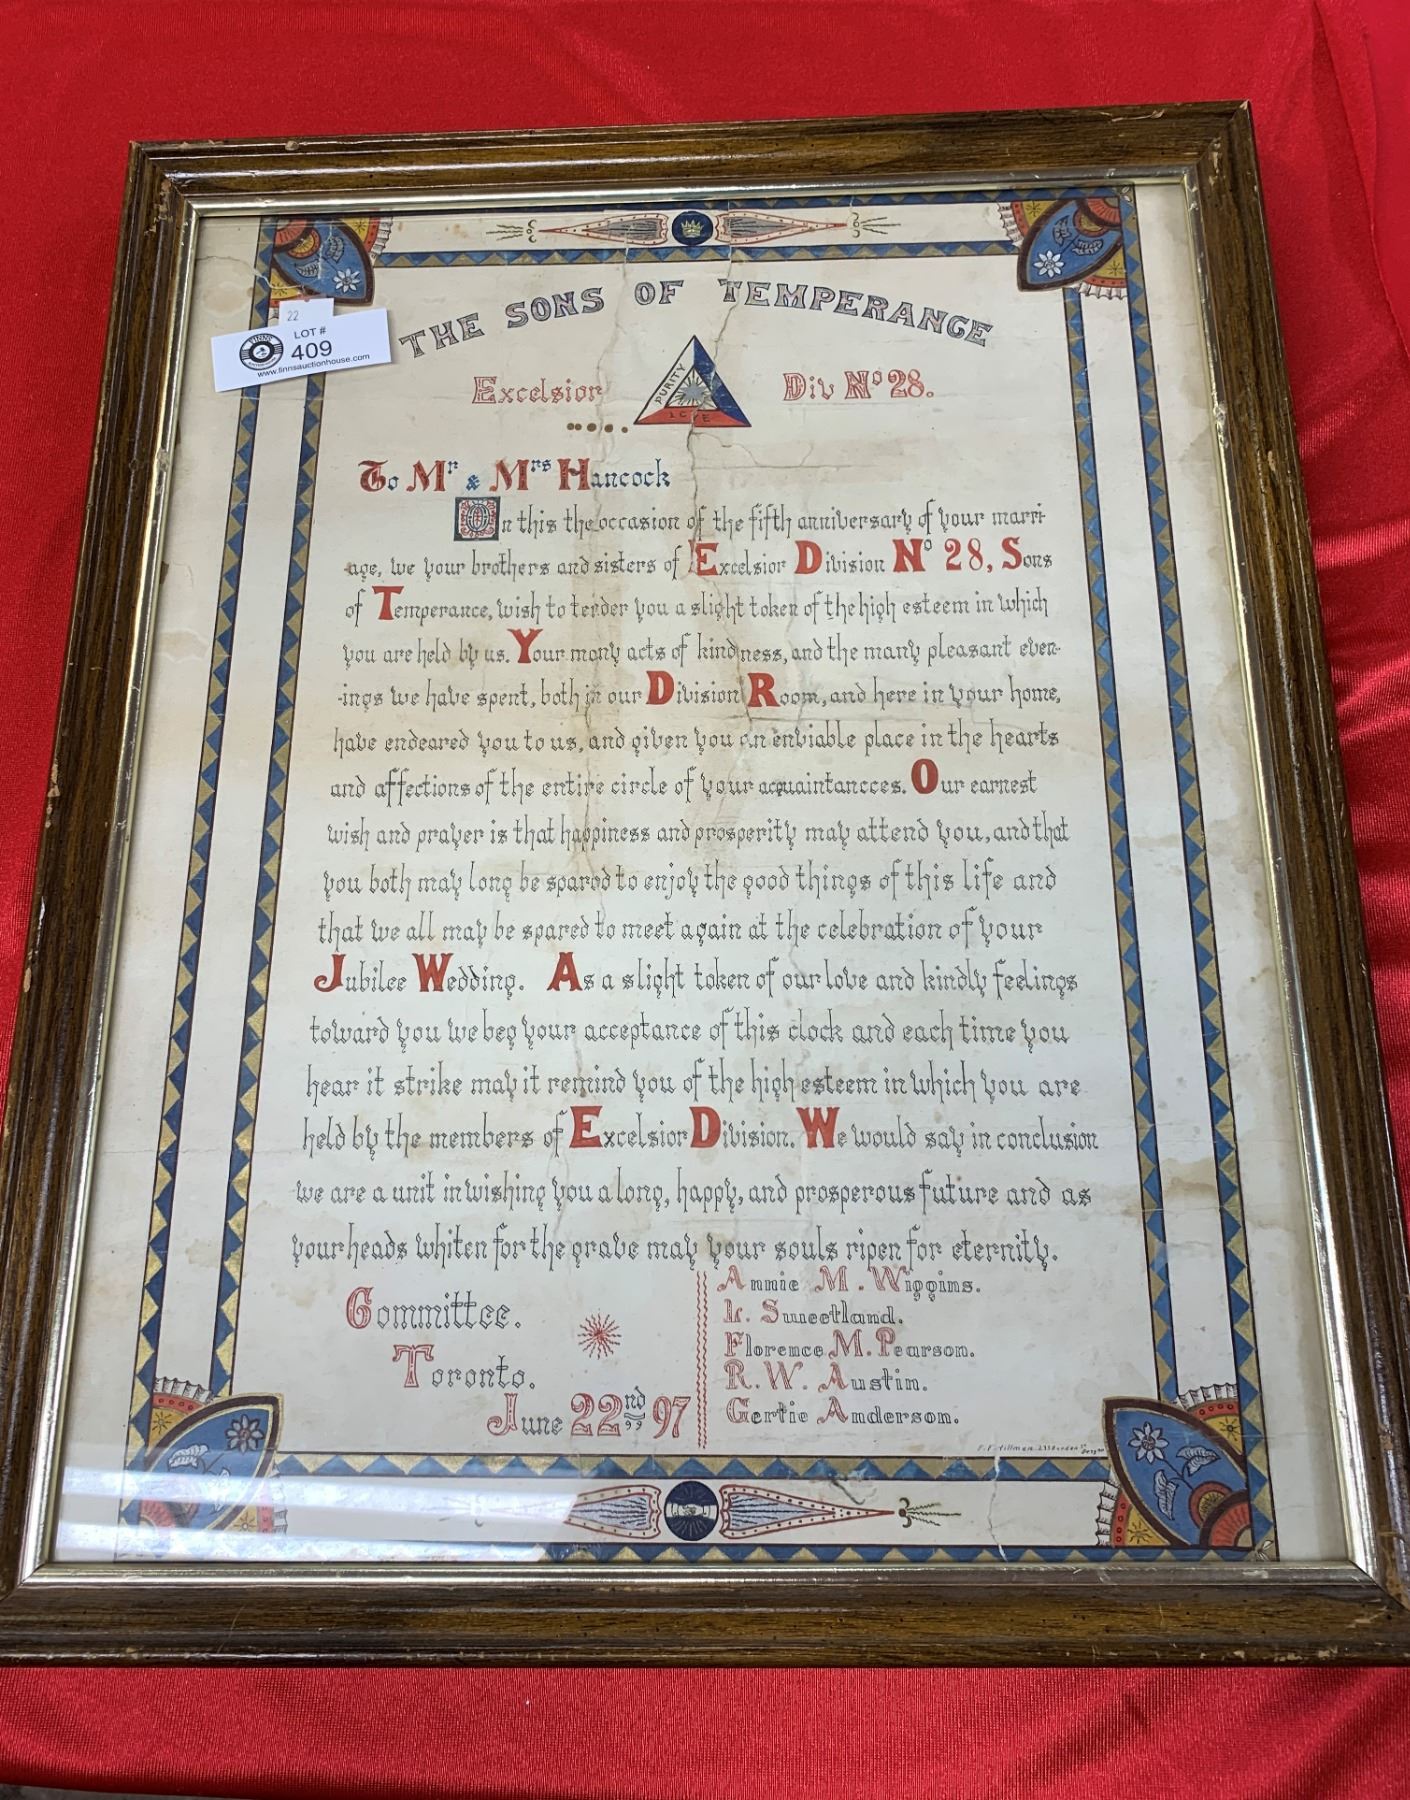 THE SONS OF TEMPERANCE
22
LOT #
409
www.finnsauctionhouse.com
PURITY
LOVE
Excelsior Div No 28.
To Mr & Mrs Hancock
On this the occasion of the fifth anniversary of your marri-
age, we your brothers and sisters of Excelsior Division No 28, Sons
of Temperance, wish to tender you a slight token of the high esteem in which
you are held by us. Your many acts of kindness, and the many pleasant even-
-ings we have spent, both in our Division Room, and here in your home,
have endeared you to us, and given you an enviable place in the hearts
and affections of the entire circle of your acquaintancces. Our earnest
wish and prayer is that happiness and prosperity may attend you, and that
you both may long be spared to enjoy the good things of this life and
that we all may be spared to meet again at the celebration of your
Jubilee Wedding. As a slight token of our love and kindly feelings
toward you we beg your acceptance of this clock and each time you
hear it strike may it remind you of the high esteem in which you are
held by the members of Excelsior Division. We would say in conclusion
we are a unit in wishing you a long, happy, and prosperous future and as
your heads whiten for the grave may your souls ripen for eternity.
Committee.
Toronto.
June 22nd 97
Annie M. Wiggins.
L. Sweetland.
Florence M. Pearson.
R. W. Austin.
Gertie Anderson.